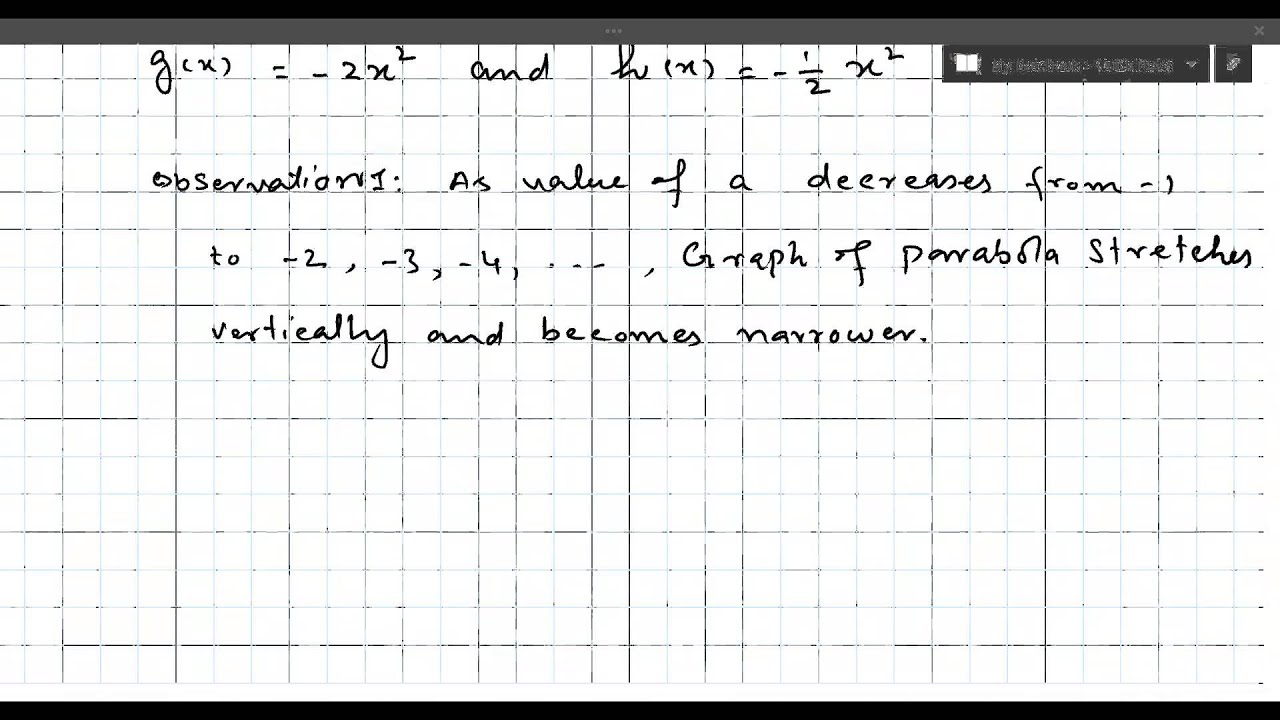 g(x) = -2x² and h(x) = -1/2 x²
Observation 1: As value of a decreases from -1
to -2, -3, -4, ..., Graph of parabola stretches
vertically and becomes narrower.